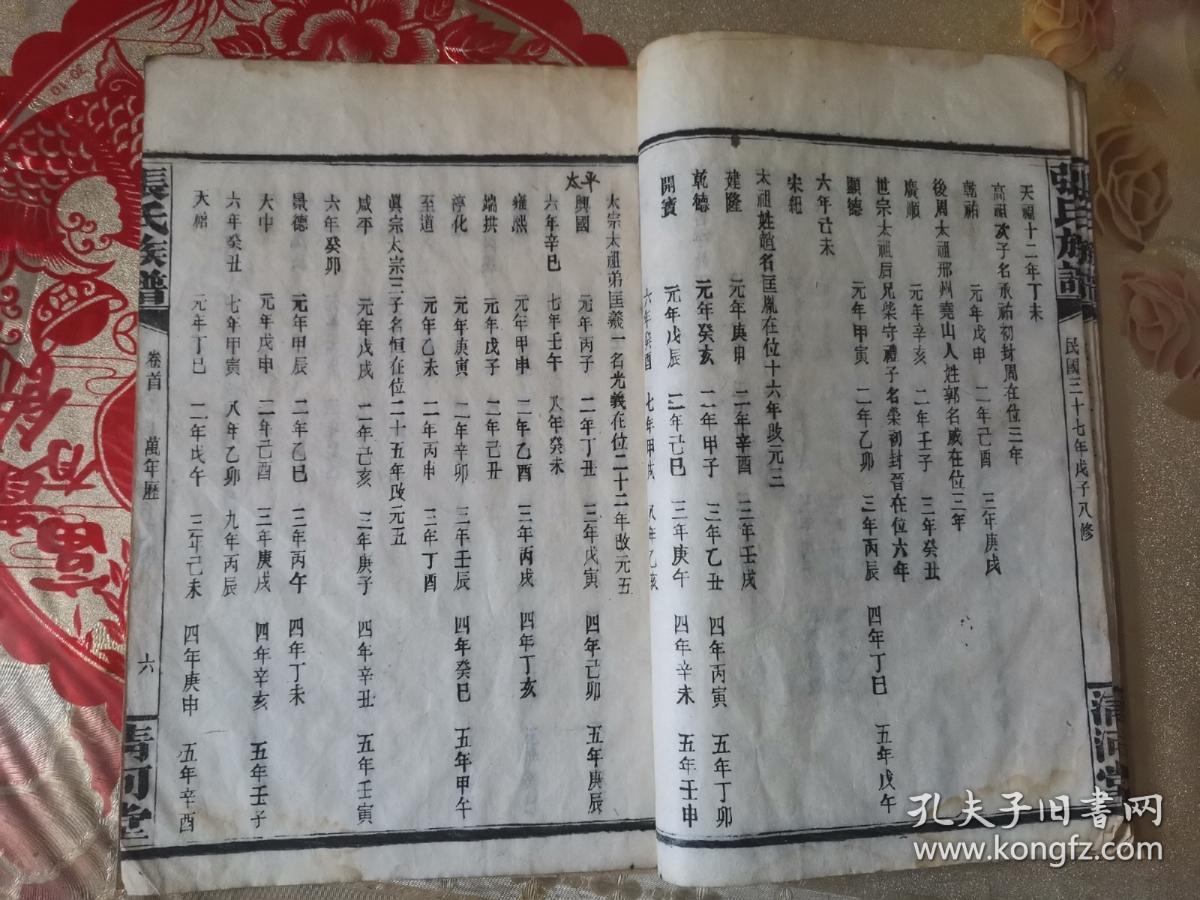 張氏族譜
民國三十七年戊子八修
清河堂
天福十二年丁未
高祖次子名承祐初封周在位三年
乾祐 元年戊申 二年己酉 三年庚戌
後周太祖邢州堯山人姓郭名威在位三年
廣順 元年辛亥 二年壬子 三年癸丑
世宗太祖后兄柴守禮子名榮初封晉在位六年
顯德 元年甲寅 二年乙卯 三年丙辰 四年丁巳 五年戊午
六年己未
宋紀
太祖姓趙名匡胤在位十六年改元三
建隆 元年庚申 二年辛酉 三年壬戌
乾德 元年癸亥 二年甲子 三年乙丑 四年丙寅 五年丁卯
開寶 元年戊辰 二年己巳 三年庚午 四年辛未 五年壬申
六年癸酉 七年甲戌 八年乙亥
太宗太祖弟匡義一名光義在位二十二年改元五
太平
興國 元年丙子 二年丁丑 三年戊寅 四年己卯 五年庚辰
六年辛巳 七年壬午 八年癸未
雍熙 元年甲申 二年乙酉 三年丙戌 四年丁亥
端拱 元年戊子 二年己丑
淳化 元年庚寅 二年辛卯 三年壬辰 四年癸巳 五年甲午
至道 元年乙未 二年丙申 三年丁酉
眞宗太宗三子名恒在位二十五年改元五
咸平 元年戊戌 二年己亥 三年庚子 四年辛丑 五年壬寅
六年癸卯
景德 元年甲辰 二年乙巳 三年丙午 四年丁未
大中 元年戊申 二年己酉 三年庚戌 四年辛亥 五年壬子
六年癸丑 七年甲寅 八年乙卯 九年丙辰
天禧 元年丁巳 二年戊午 三年己未 四年庚申 五年辛酉
張氏族譜
卷首 萬年歷 六
清河堂
孔夫子旧書网
www.kongfz.com